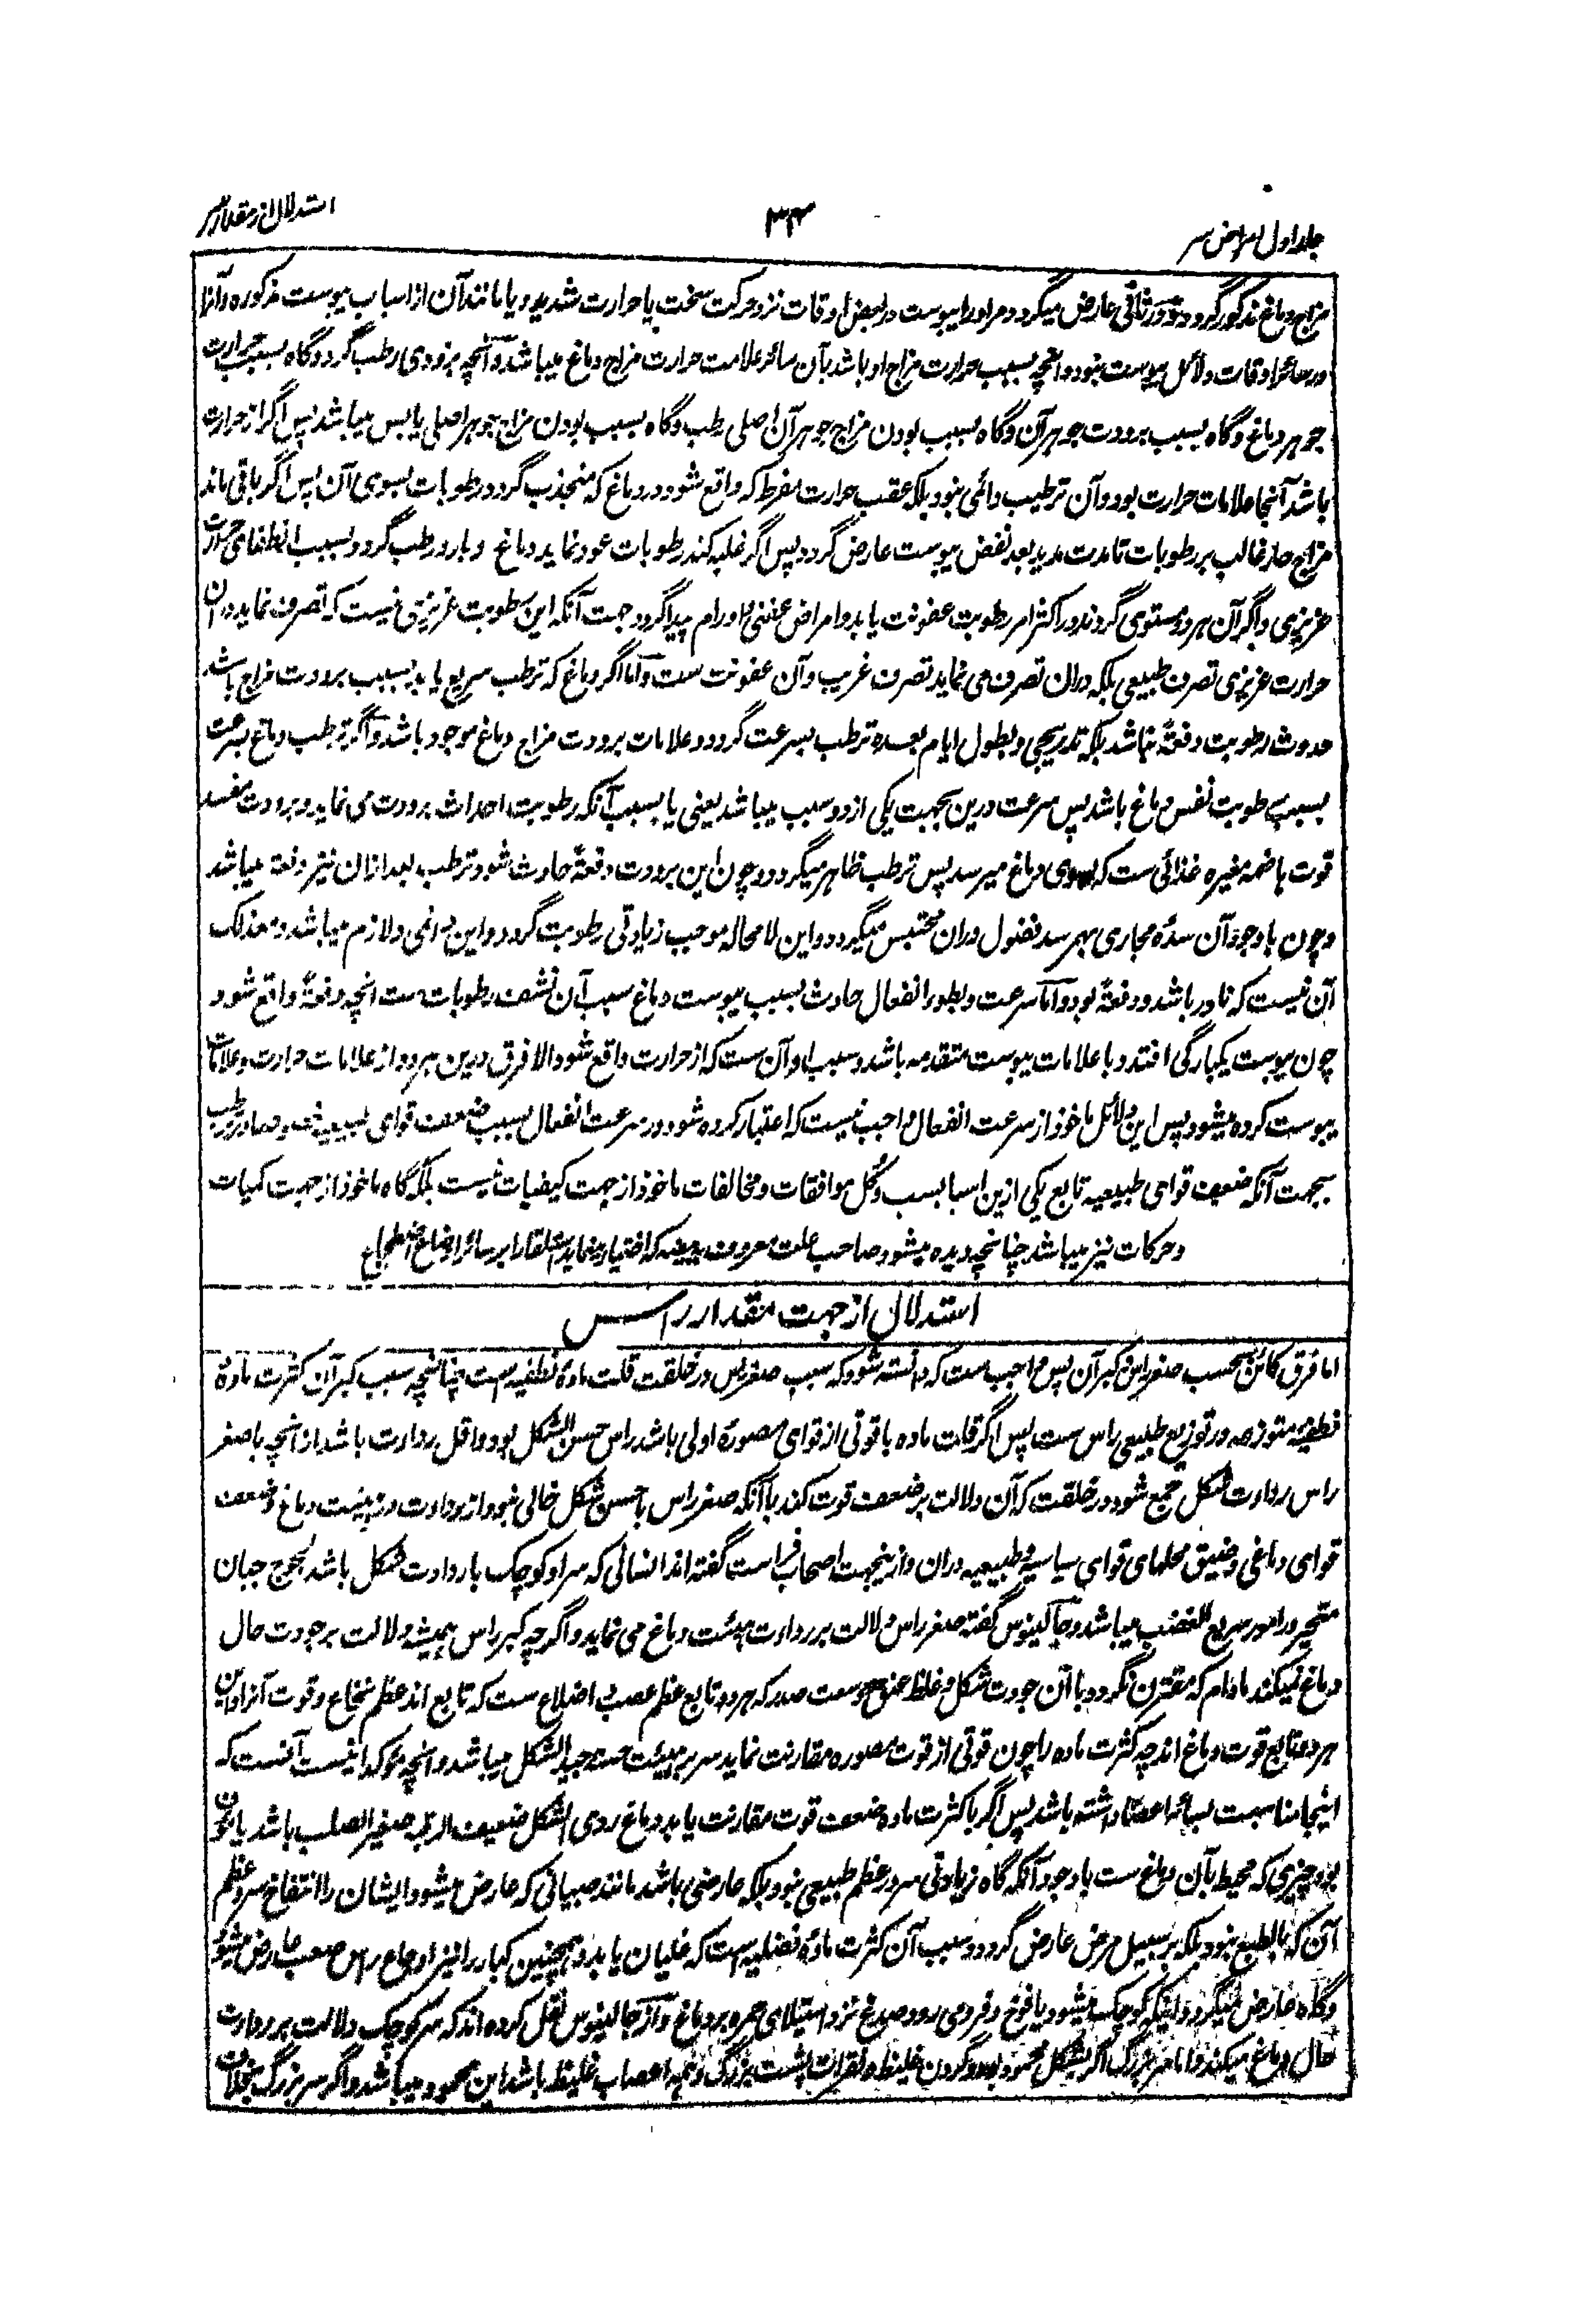 جلد اول امراض سر
۳۴
استدلال از مقدار سر
مزاج دماغ مذکور گردد و در ثانی عارض میگردد مر او را یبوست در بعض اوقات نزد حرکت سخت یا حرارت شدید و یا مانند آن از اسباب یبوست مذکوره و اما
در سائر اوقات دلائل یبوست نبود و آنچه بسبب حرارت مزاج او باشد بآن سائر علامت حرارت مزاج دماغ میباشد و آنچه بزودی رطب گردد گاه بسبب حرارت
جوهر دماغ و گاه بسبب برودت جوهر آن و گاه بسبب بودن مزاج جوهر آن اصلی رطب و گاه بسبب بودن مزاج جوهر اصلی یابس میباشد پس اگر از حرارت
باشد آنجا علامات حرارت بود و آن ترطیب دائمی نبود بلکه عقب حرارت مفرط که واقع شود در دماغ که منجذب گردد رطوبات بسوی آن پس اگر باقی ماند
مزاج حار غالب بر رطوبات تا مدت مدید بعد نفض یبوست عارض گردد پس اگر غلبه کند رطوبات عود نماید دماغ و بارد رطب گردد بسبب انطفای حرارت
عزیزی و اگر آن هر دو مستوی گردند در اکثر امر رطوبت عفونت یابد و امراض عفنی و اورام پیدا گردد جهت آنکه این رطوبت غریزی نیست که تصرف نماید در آن
حرارت عزیزی تصرف طبیعی بلکه دران تصرف می نماید تصرف غریب و آن عفونت ست و اما اگر دماغ که ترطب سریع یابد بسبب برودت مزاج باشد
حدوث رطوبت دفعةً نباشد بلکه تدریجی و بطول ایام بعده ترطب بسرعت گردد و علامات برودت مزاج دماغ موجود باشد و اگر ترطب دماغ بسرعت
بسبب رطوبت نفس دماغ باشد پس سرعت درین بجهت یکی از دو سبب میباشد یعنی یا بسبب آنکه رطوبت احداث برودت می نماید و برودت مفسد
قوت هاضمه مغیره غذائی ست که بسوی دماغ میرسد پس ترطب ظاهر میگردد و چون این برودت دفعةً حادث شود ترطب بعد ازان نیز دفعة میباشد
و چون با وجود آن سده مجاری بهم رسد فضول دران محتبس میگردد و این لا محاله موجب زیادتی رطوبت گردد و این دائمی و لازم میباشد و معذلک
آن نیست که نادر باشد و دفعةً بود و اما سرعت و بطور انفعال حادث بسبب یبوست دماغ سبب آن نشف رطوبات ست انچه دفعةً واقع شود
چون یبوست یکبارگی افتد و با علامات یبوست متقدمه باشد و سبب او آن ست که از حرارت واقع شود و الا فرق درین هر دو از علامات حرارت و علامات
یبوست کرده میشود پس این دلائل ماخوذ از سرعت انفعال واجب نیست که اعتبار کرده شود در سرعت انفعال بسبب ضعف قوای طبیعیه خصوصا در ترطب
بجهت آنکه ضعف قوای طبیعیه تابع یکی ازین اسباب ست و کل موافقات و مخالفات ماخوذ از جهت کیفیات نیست بلکه گاه ماخوذ از جهت کمیات
و حرکات نیز میباشد چنانچه دیده میشود صاحب علت معروف به بیضه که اختیار مینماید استلقا را بر سائر اوضاع اضطجاع
استدلال از جهت مقدار راس
اما فرق کائن بحسب صغر راس و کبر آن پس واجب ست که دانسته شود که سبب صغر راس در خلقت قلت ماده نطفیه ست چنانچه سبب کبر آن کثرت ماده
نطفیه متوزعه در توزیع طبیعی راس ست پس اگر قلت ماده با قوتی از قوای مصوره اولی باشد راس حسن الشکل بود و اقل رداءت باشد از انچه با صغر
راس رداءت شکل جمع شود در خلقت که آن دلالت بر ضعف قوت کند با آنکه صغر راس با حسن شکل خالی نبود از رداءت در هیئت دماغ و ضعف
قوای دماغی و ضیق محلهای قوای سیاسیه و طبیعیه دران و ازینجهت اصحاب فراست گفته اند انسانی که سر او کوچک با رداءت شکل باشد لجوج جبان
متحیر در امور سریع الغضب میباشد و جالینوس گفته صغر راس دلالت بر رداءت هیئت دماغ می نماید و اگر چه کبر راس همیشه دلالت بر جودت حال
دماغ نمیکند مادام که مقترن نگردد با آن جودت شکل و غلظ عنق و وسعت صدر که هر دو تابع عظم عصب و اضلاع ست که تابع اند عظم نخاع و قوت آنرا و این
هر دو تابع قوت دماغ اند چه کثرت ماده را چون قوتی از قوت مصوره مقارنت نماید سر بر هیئت جید الشکل میباشد و آنچه موکد اینست آنست که
اینجا مناسبت بسائر اعضا داشته باشد پس اگر با کثرت ماده ضعف قوت مقارنت یابد دماغ ردی الشکل ضعیف الرقبه صغیر الصلب باشد یا ماؤف
بود چیزی که محیط بآن دماغ ست با وجود آنکه گاه زیادتی سر در عظم طبیعی نبود بلکه عارضی باشد مانند صبیانی که عارض میشود ایشان را انتفاخ سر و عظم
آن که بالطبع نبود بلکه بر سبیل مرض عارض گردد و سبب آن کثرت ماده فضلیه ست که غلیان یابد و همچنین کبار را نیز اوجاع راس صعب عارض میشود
و گاه عارض میگردد اینکه کوچک میشود یافوخ و فرو می رود صدغ نزد استیلای حمره بر دماغ و از جالینوس نقل کرده اند که سر کوچک دلالت بر رداءت
حال دماغ میکند و اما سر بزرگ اگر بشکل محمود بود و گردن غلیظ و فقرات پشت بزرگ و همه اعصاب غلیظ باشد این محمود میباشد و اگر سر بزرگ بخلاف